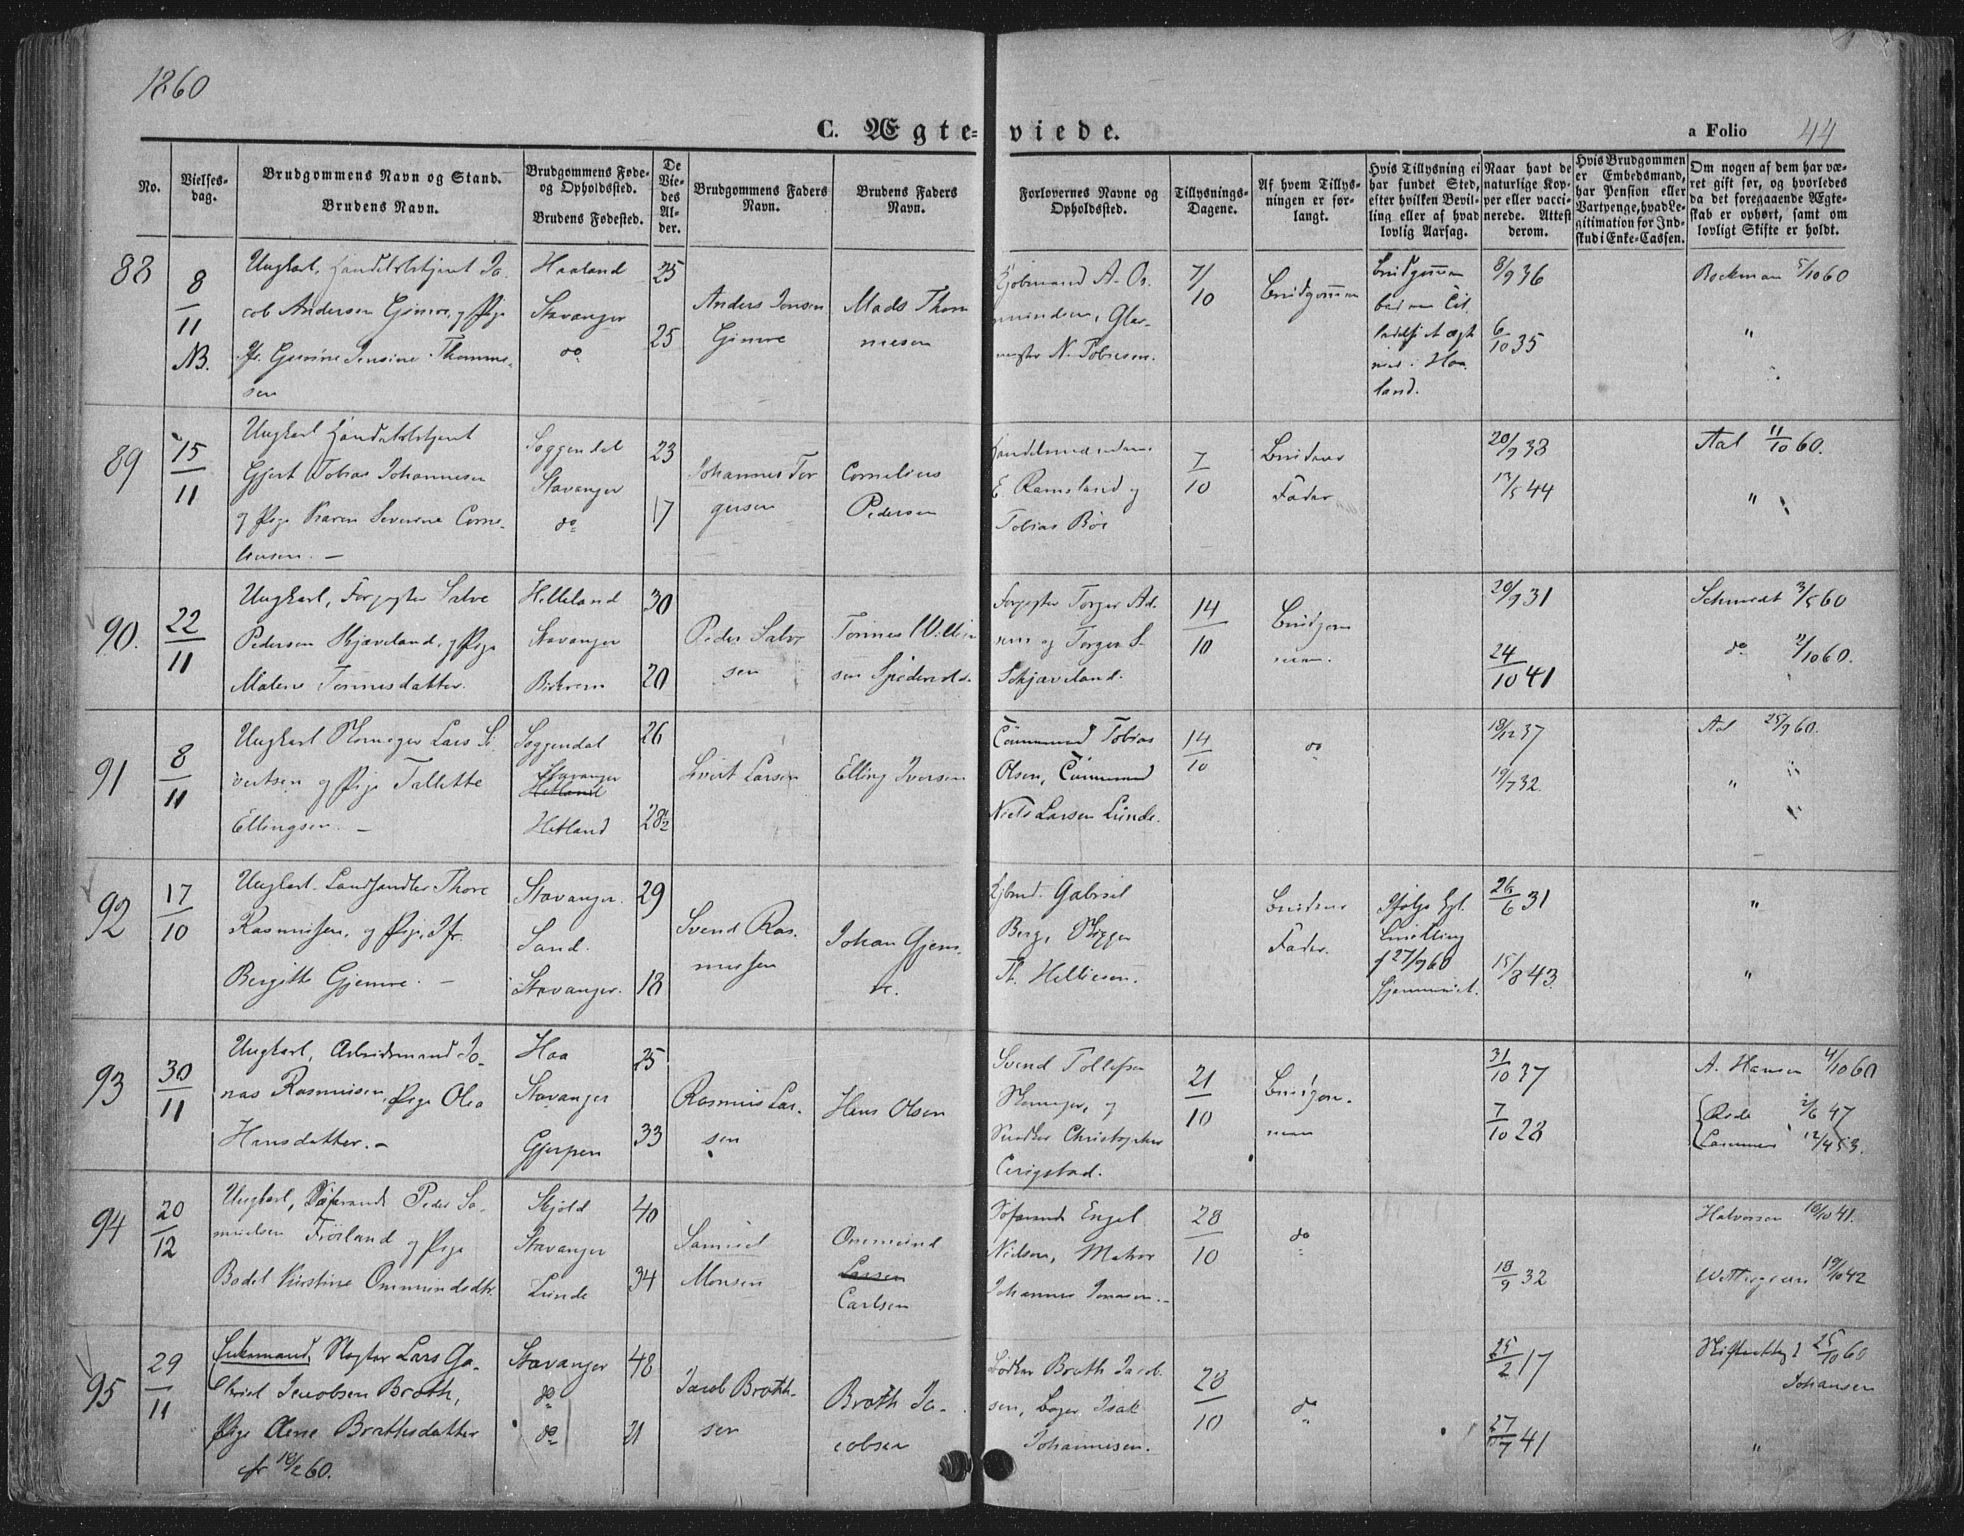 1860
C. Ægte-
viede.
a Folio 44
No.
Vielses-
dag.
Brudgommens Navn og Stand.
Brudens Navn.
Brudgommens Føde-
og Opholdssted.
Brudens Fødested.
De
Vie-
des
Al-
der.
Brudgommens Faders
Navn.
Brudens Faders
Navn.
Forlovernes Navne og
Opholdssted.
Tillysnings-
Dagene.
Af hvem Tillys-
ningen er for-
langt.
Hvis Tillysning ei
har fundet Sted,
efter hvilken Bevil-
ling eller af hvad
lovlig Aarsag.
Naar havt de
naturlige Kop-
per eller vacci-
nerede. Attest
derom.
Hvis Brudgommen
er Embedsmand,
har Pension eller
Vartpenge, hvad Le-
gitimation for Ind-
skud i Enke-Cassen.
Om nogen af dem har væ-
ret gift før, og hvorledes
da det foregaaende Ægte-
skab er ophørt, samt om
lovligt Skifte er holdt.
88
8/11
NB.
Ungkarl, Handelsbetjent Ja-
cob Andersen Gimre, og Pige
Jfr. Gurine Jensine Thomme-
sen
Haaland
Stavanger
do
25
25
Anders Jensen
Gimre
Mads Thom
mesen
Kjøbmand A. As
mundsen, Glar-
mester N. Tobiesen.
7/10
Brudgommen
Haa
land.
8/9 36
6/10 35
Bockman 5/10 60
"
89
15/11
Ungkarl Handelsbetjent
Gjert Tobias Johannesen
og Pige Karen Severine Corne-
liusen. —
Soggendal
Stavanger
do
23
17
Johannes Tor
gersen
Cornelius
Pedersen
E. Ramsland og
Tobias Bøe
7/10
Brudens
Fader
20/9 38
13/5 44
Aal 11/10 60.
"
90.
22/11
Ungkarl, Forpagter Salve
Pedersen Skjæveland, og Pige
Malene Tønnesdatter.
Helleland
Stavanger
Birkrem
30
20
Peder Salve
sen
Tønnes Willum
sen
Forpagter Torger Ad-
sen og Torger S.
Skjæveland.
14/10
Brudgom
men.
20/9 31
24/10 41
Schmidt 3/5 60
do 2/10 60.
91
8/11
Ungkarl Skomager Lars Si
vertsen og Pige Tallette
Ellingsen. —
Soggendal
Stavanger
Hetland
Hetland
26
28½
Sivert Larsen
Elling Iversen
Tømmermand Tobias
Olsen, Tømmermand
Niels Larsen Lunde.
14/10
do
18/12 37
19/7 32.
Aal 25/9 60.
"
92
17/10
Ungkarl, Landhandler Thore
Rasmussen, og Pige, Jfr.
Bergitte Gjemre. —
Stavanger.
Sand.
Stavanger.
29
18
Svend Ras-
mussen
Johan Gjem-
re.
Kjbmd. Gabriel
Berg, Skipper
Th. Helliesen.
Brudens
Fader.
Ifølge Kgl.
Bevilling
f 27/9 60
26/6 31
15/8 43.
"
"
93
30/11
Ungkarl, Arbeidsmand Jo-
nas Rasmussen, Pige Olea
Hansdatter. —
Haa
Stavanger
Gjerpen
25
33
Rasmus Lar-
sen
Hans Olsen
Svend Tollefsen
Skomager, og
Snedker Christopher
Cerigstad.
21/10
Brudgom-
men
31/10 37
7/10 28
A. Hansen 4/10 60
Rode 2/6 47
Lammers 12/4 53.
94
20/12
Ungkarl, Søfarende Peder Sa-
muelsen Frøiland og Pige
Bodel Kirstine Ommundsdtr.
Skjold
Stavanger
Lunde
40
34
Samuel
Monsen
Ommund
Larsen
Carlsen
Søfarende Engel
Nielsen, Matros
Johannes Jonasen. -
28/10
do
18/9 32
Halvorsen 10/10 41.
Wettergreen 19/10 42
95
29/11
Enkemand, Slagter Lars Ga-
briel Jacobsen Brath,
Pige Anne Brathesdatter
cfr 16/2 60.
Stavanger
do
do
48
21
Jacob Brath-
sen
Brath Ja-
cobsen
Bødker Brath Jacob-
sen, Bager Isak
Johannesen.
28/10
do
25/2 17
27/7 41
Skifteattest 25/10 60
Johansen
"